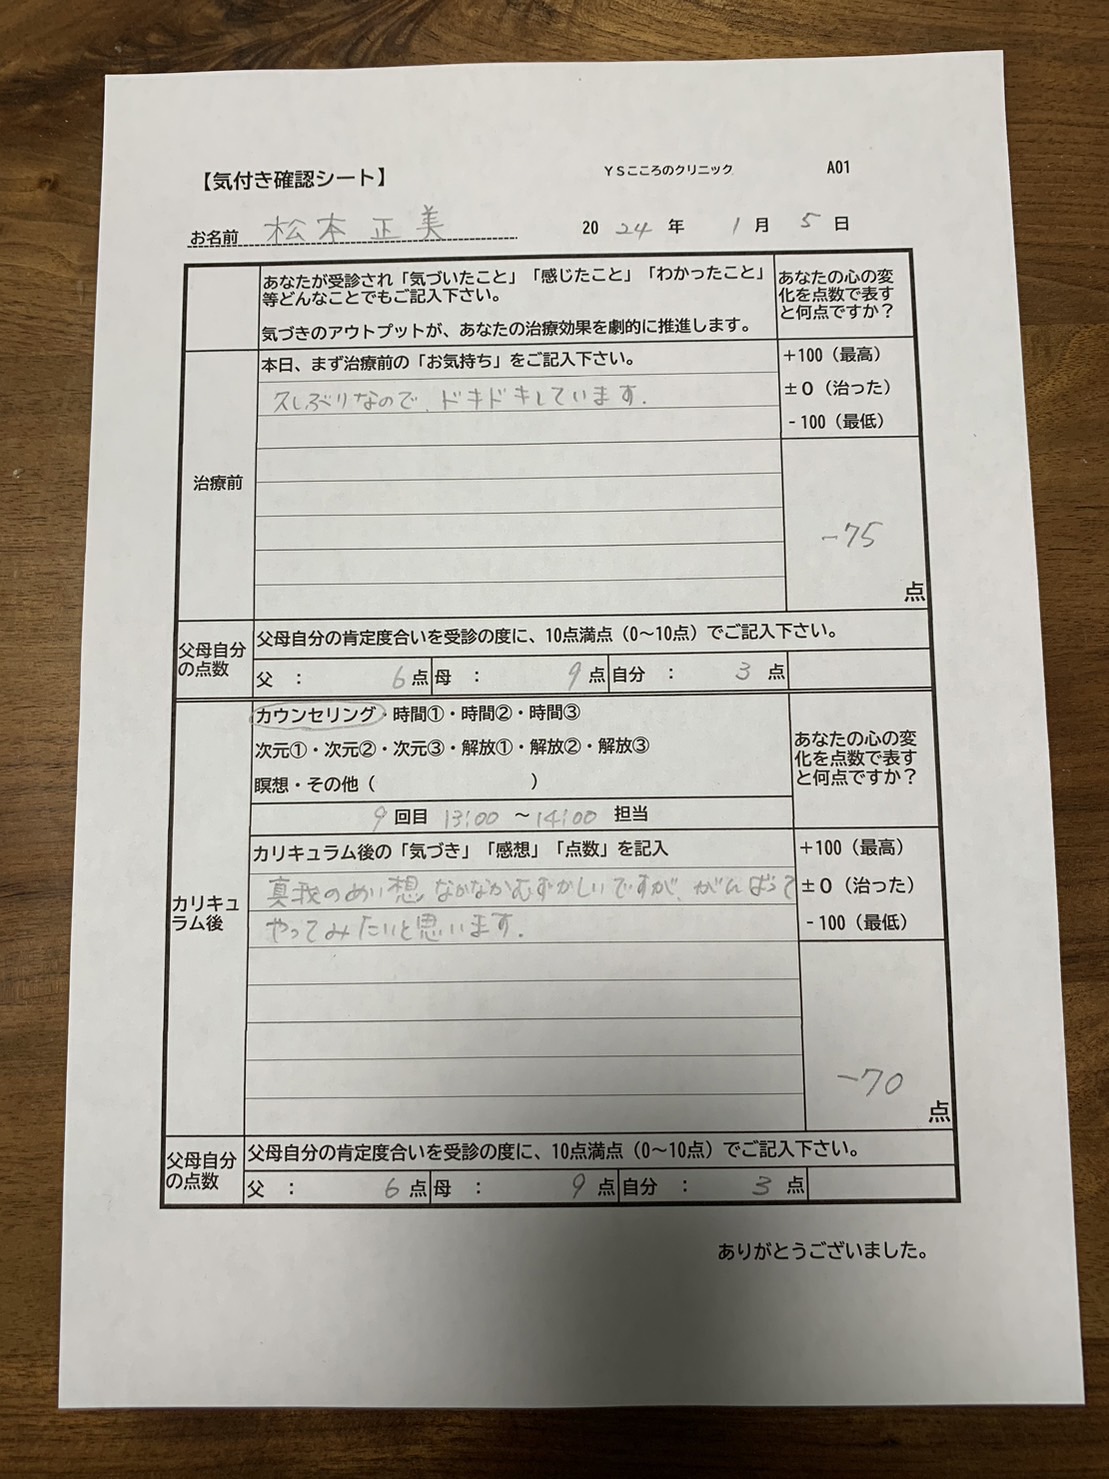 【気付き確認シート】 YSこころのクリニック A01
お名前 松本正美 2024年 1月 5日
あなたが受診され「気づいたこと」「感じたこと」「わかったこと」
等どんなことでもご記入下さい。
気づきのアウトプットが、あなたの治療効果を劇的に推進します。
あなたの心の変
化を点数で表す
と何点ですか？
治療前
本日、まず治療前の「お気持ち」をご記入下さい。
久しぶりなので、ドキドキしています.
+100（最高）
±0（治った）
-100（最低）
-75
点
父母自分
の点数
父母自分の肯定度合いを受診の度に、10点満点（0～10点）でご記入下さい。
父 ： 6点 母 ： 9点 自分 ： 3点
カリキュ
ラム後
カウンセリング・時間①・時間②・時間③
次元①・次元②・次元③・解放①・解放②・解放③
瞑想・その他（ ）
9回目 13:00 ～14:00 担当
あなたの心の変
化を点数で表す
と何点ですか？
カリキュラム後の「気づき」「感想」「点数」を記入
真我のめい想、なかなかむずかしいですが、がんばって
やってみたいと思います.
+100（最高）
±0（治った）
-100（最低）
-70
点
父母自分
の点数
父母自分の肯定度合いを受診の度に、10点満点（0～10点）でご記入下さい。
父 ： 6点 母 ： 9点 自分 ： 3点
ありがとうございました。